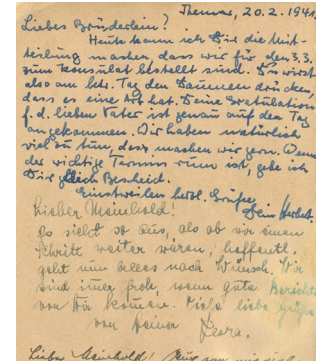 Themar, 20.2.1941.
Liebes Brüderlein!
Heute kann ich Dir die Mit-
teilung machen, dass wir für den 3.3.
zum Konsulat bestellt sind. Du wirst
also am betr. Tag den Daumen drücken,
dass es eine Art hat. Deine Gratulation
f. d. lieben Vater ist genau auf den Tag
angekommen. Wir haben natürlich
viel zu tun, doch machen wir gern. Wenn
der wichtige Termin rum ist, gebe ich
Dir gleich Bescheid.
Einstweilen herzl. Grüße
Dein Herbert.
Lieber Meinhold!
Es sieht so aus, als ob wir einen
Schritt weiter wären, hoffentl.
geht nun alles nach Wunsch. Wir
sind immer froh, wenn gute Berichte
von Dir kommen. liebe Grüße
von Deiner
Lieber Meinhold!